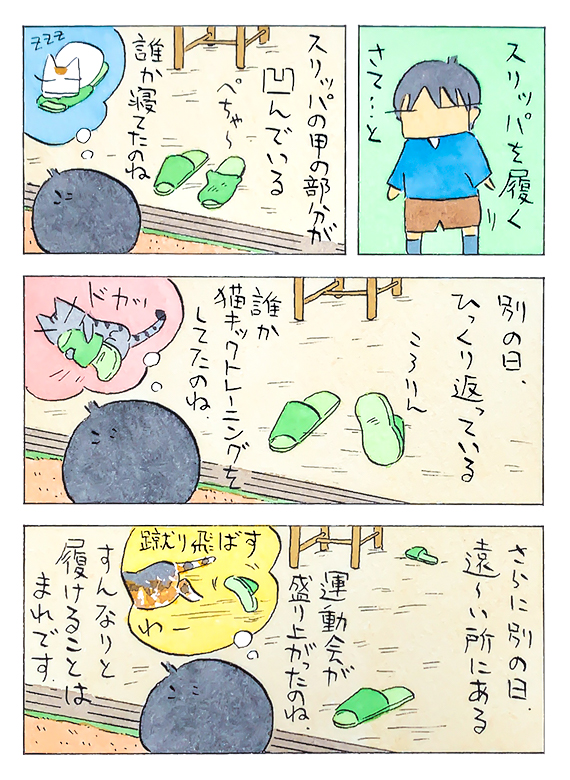 スリッパを履く
さて…と
スリッパの甲の部分が
凹んでいる
ぺちゃ〜
誰か寝てたのね
zzz
別の日、
ひっくり返っている
ころりん
誰か
猫キックトレーニングを
してたのね。
ドカッ
さらに別の日、
遠〜い所にある
運動会が
盛り上がったのね。
蹴り飛ばす
わー
すんなりと
履けることは
まれです。